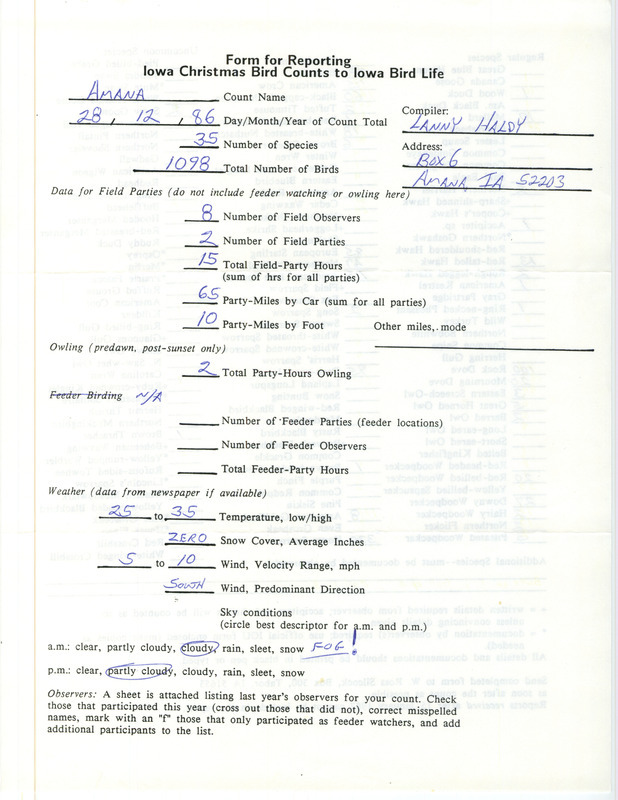 Form for Reporting
Iowa Christmas Bird Counts to Iowa Bird Life
AMANA Count Name
28, 12, 86 Day/Month/Year of Count Total
Compiler:
LANNY HALDY
35 Number of Species
Address:
1098 Total Number of Birds
BOX 6
AMANA, IA 52203
Data for Field Parties (do not include feeder watching or owling here)
8 Number of Field Observers
2 Number of Field Parties
15 Total Field-Party Hours
(sum of hrs for all parties)
65 Party-Miles by Car (sum for all parties)
10 Party-Miles by Foot Other miles, mode
Owling (predawn, post-sunset only)
2 Total Party-Hours Owling
Feeder Birding N/A
Number of Feeder Parties (feeder locations)
Number of Feeder Observers
Total Feeder-Party Hours
Weather (data from newspaper if available)
25 to 35 Temperature, low/high
ZERO Snow Cover, Average Inches
5 to 10 Wind, Velocity Range, mph
SOUTH Wind, Predominant Direction
Sky conditions
(circle best descriptor for a.m. and p.m.)
a.m.: clear, partly cloudy, cloudy, rain, sleet, snow FOG!
p.m.: clear, partly cloudy, cloudy, rain, sleet, snow
Observers: A sheet is attached listing last year's observers for your count. Check
those that participated this year (cross out those that did not), correct misspelled
names, mark with an "f" those that only participated as feeder watchers, and add
additional participants to the list.